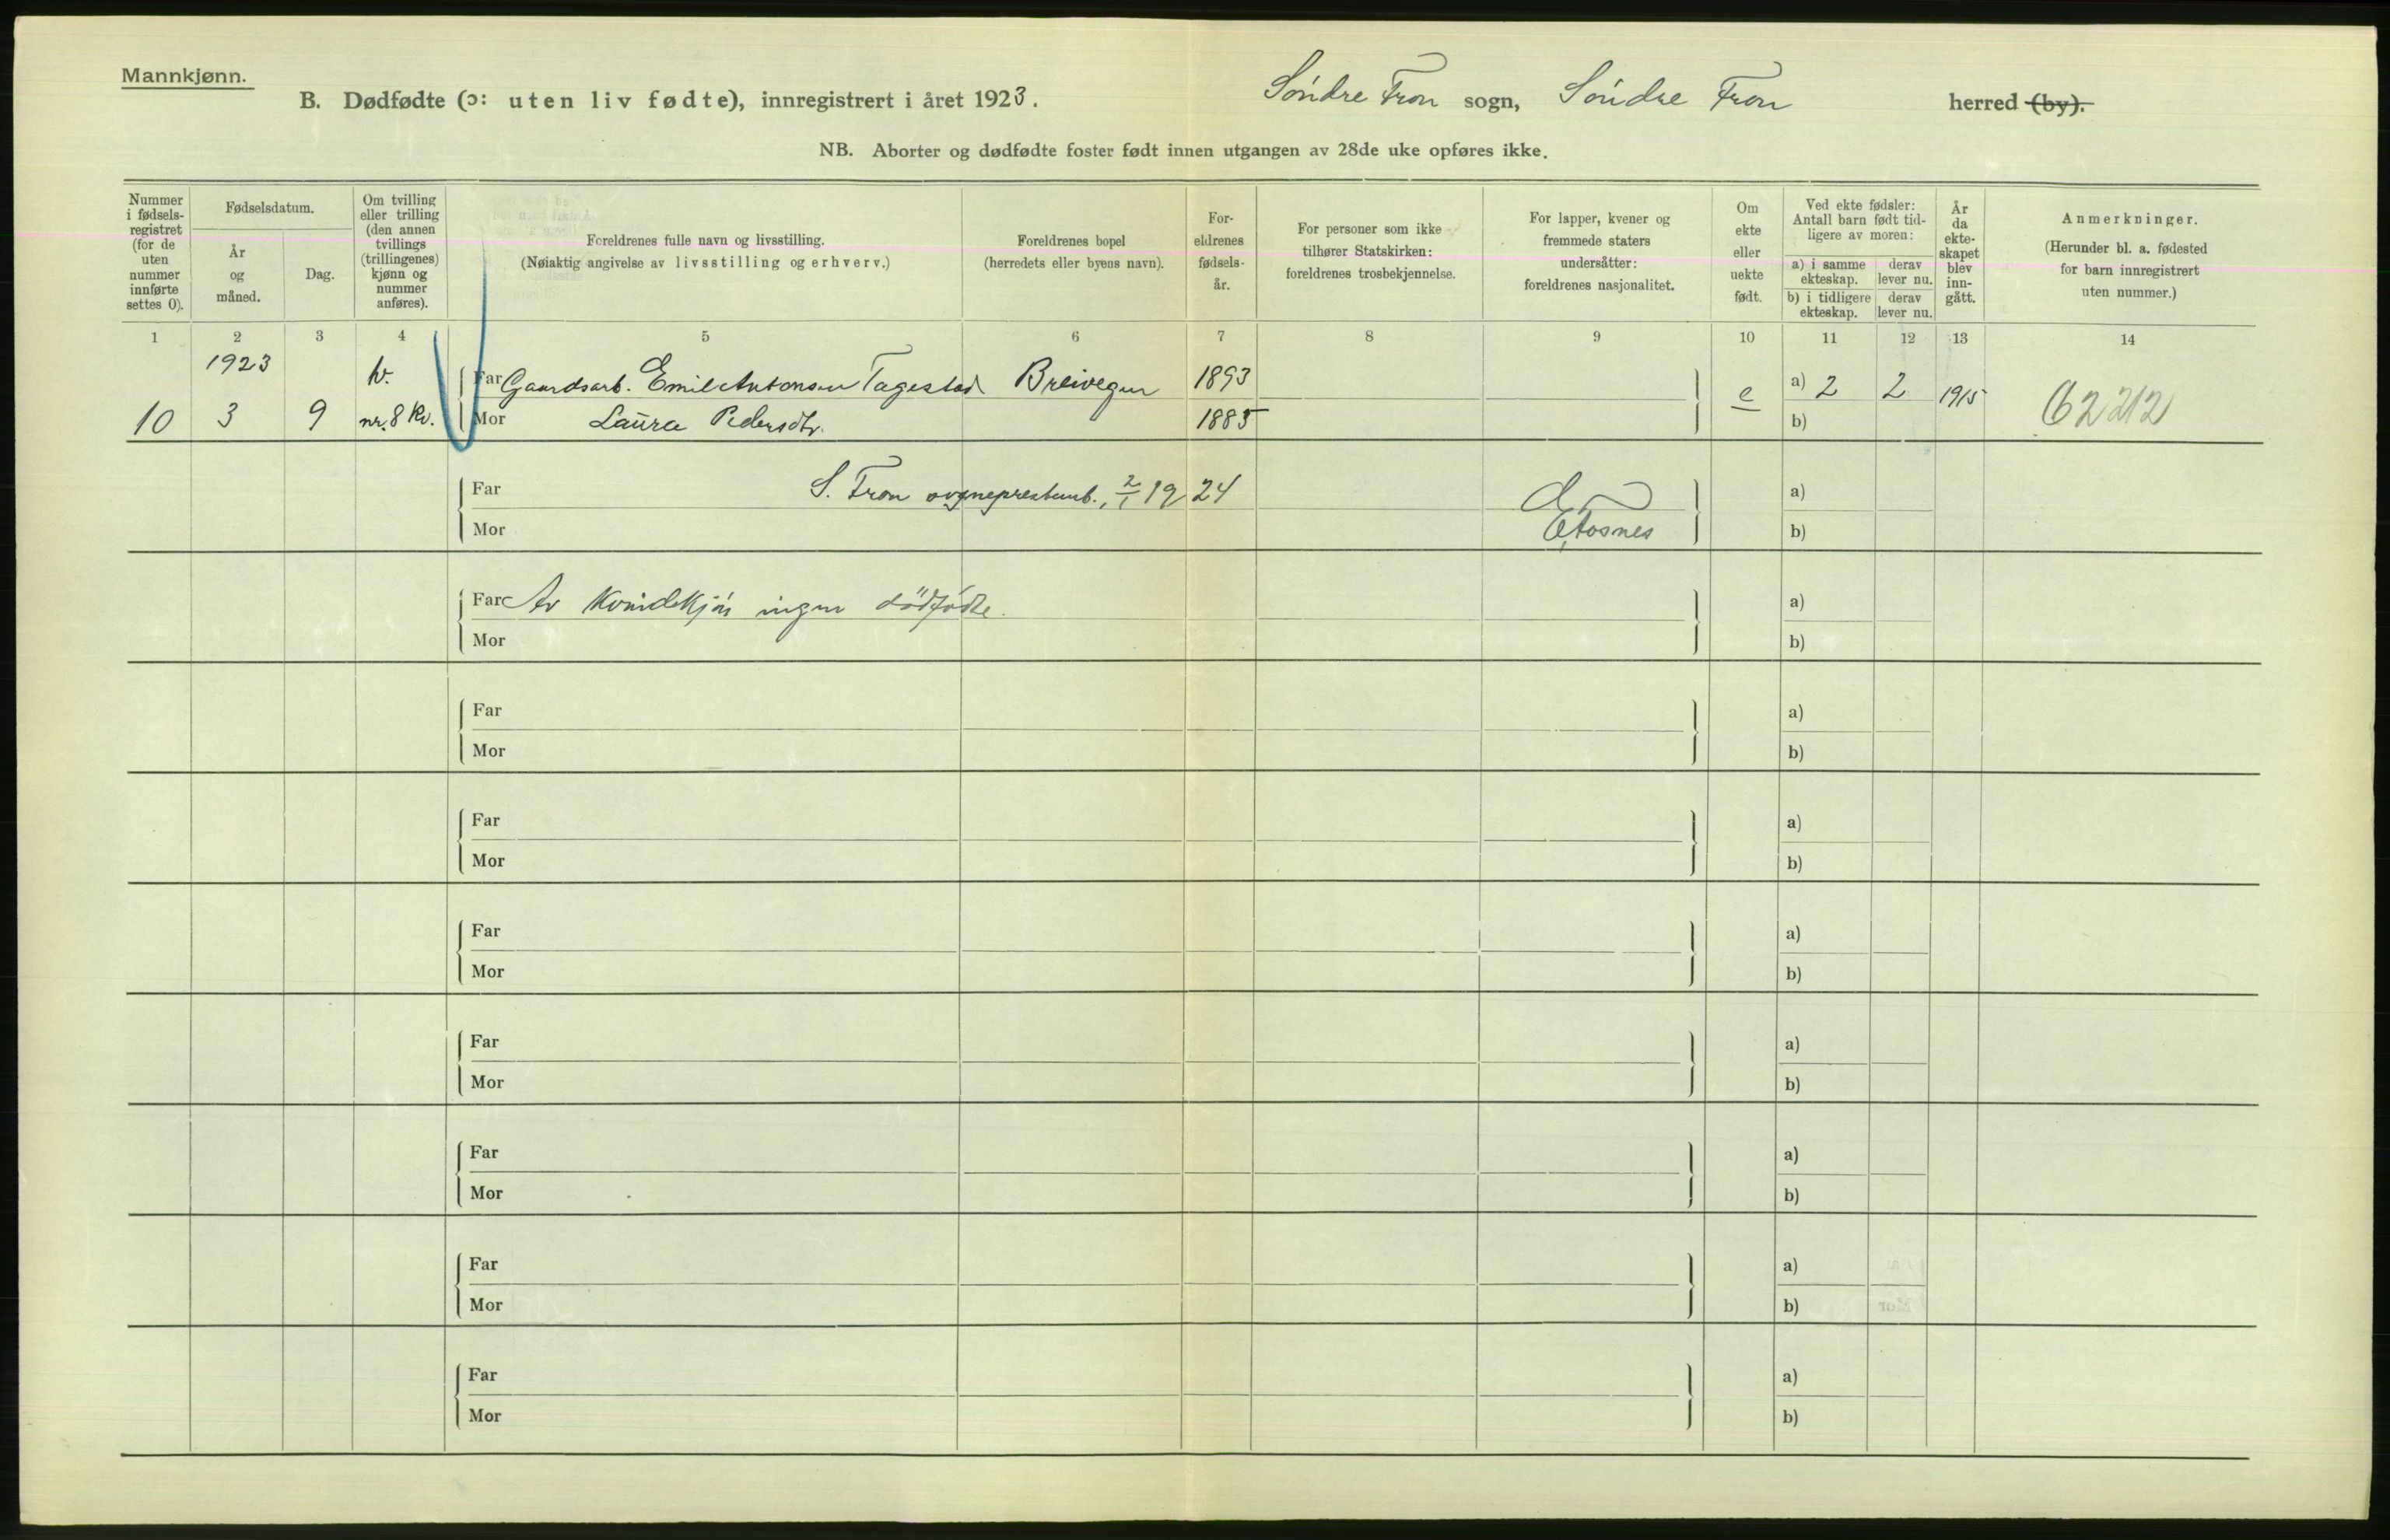 Mannkjønn.
B. Dødfødte (ɔ: uten liv fødte), innregistrert i året 1923. Söndre Fron sogn, Söndre Fron herred (by).
NB. Aborter og dødfødte foster født innen utgangen av 28de uke opføres ikke.
Nummer i fødsels-registret (for de uten nummer innførte settes 0).
Fødselsdatum.
År og måned.
Dag.
Om tvilling eller trilling (den annen tvillings (trillingenes) kjønn og nummer anføres).
Foreldrenes fulle navn og livsstilling.
(Nøiaktig angivelse av livsstilling og erhverv.)
Foreldrenes bopel
(herredets eller byens navn).
For-eldrenes fødsels-år.
For personer som ikke tilhører Statskirken: foreldrenes trosbekjennelse.
For lapper, kvener og fremmede staters undersåtter: foreldrenes nasjonalitet.
Om ekte eller uekte født.
Ved ekte fødsler: Antall barn født tid-ligere av moren:
a) i samme ekteskap. derav lever nu.
b) i tidligere ekteskap. derav lever nu.
År da ekte-skapet blev inn-gått.
Anmerkninger.
(Herunder bl. a. fødested for barn innregistrert uten nummer.)
1 2 3 4 5 6 7 8 9 10 11 12 13 14
1923 tv. Far Gaardsarb. Emil Antonsen Tagestad Breivegen 1893 e a) 2 2 1915 62212
10 3 9 nr. 8 Kv. Mor Laura Pedersdtr. 1885 b)
Far S. Fron sogneprestemb., 2/1 1924 a)
Mor b)
Far Av Kvindekjön ingen dödfödte. a)
Mor b)
Far a)
Mor b)
Far a)
Mor b)
Far a)
Mor b)
Far a)
Mor b)
Far a)
Mor b)
Far a)
Mor b)
Far a)
Mor b)